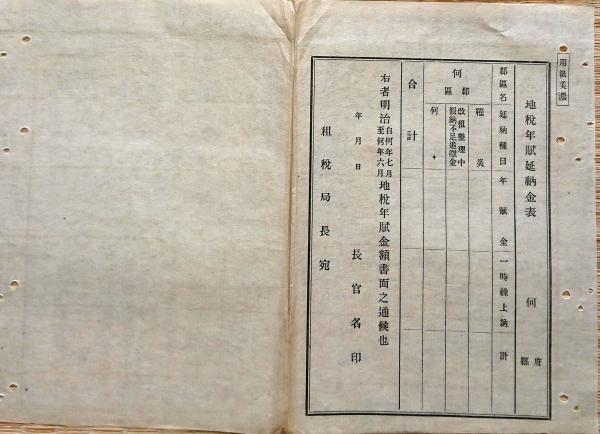 用紙美濃
地稅年賦延納金表 何 府縣
郡區名 延納種目 年賦金 一時繰上納 計
何 郡區
罹災
改租整理中假納不足追徵金
何々
合計
右者明治自何年七月至何年六月地稅年賦金額書面之通候也
年月日 長官名印
租稅局長宛